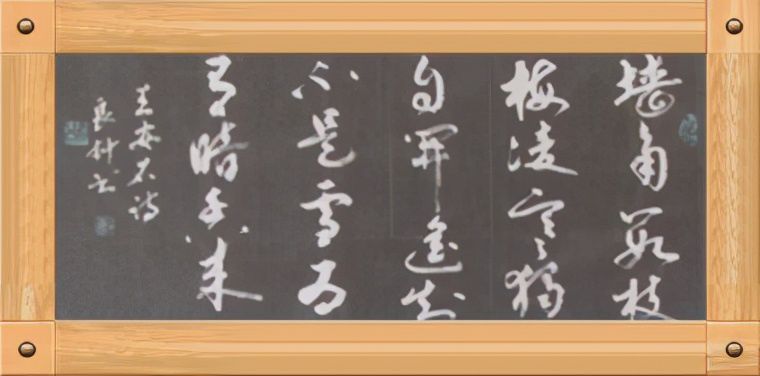 墙角数枝
梅凌寒独
自开遥知
不是雪为
有暗香来
王安石诗
良书